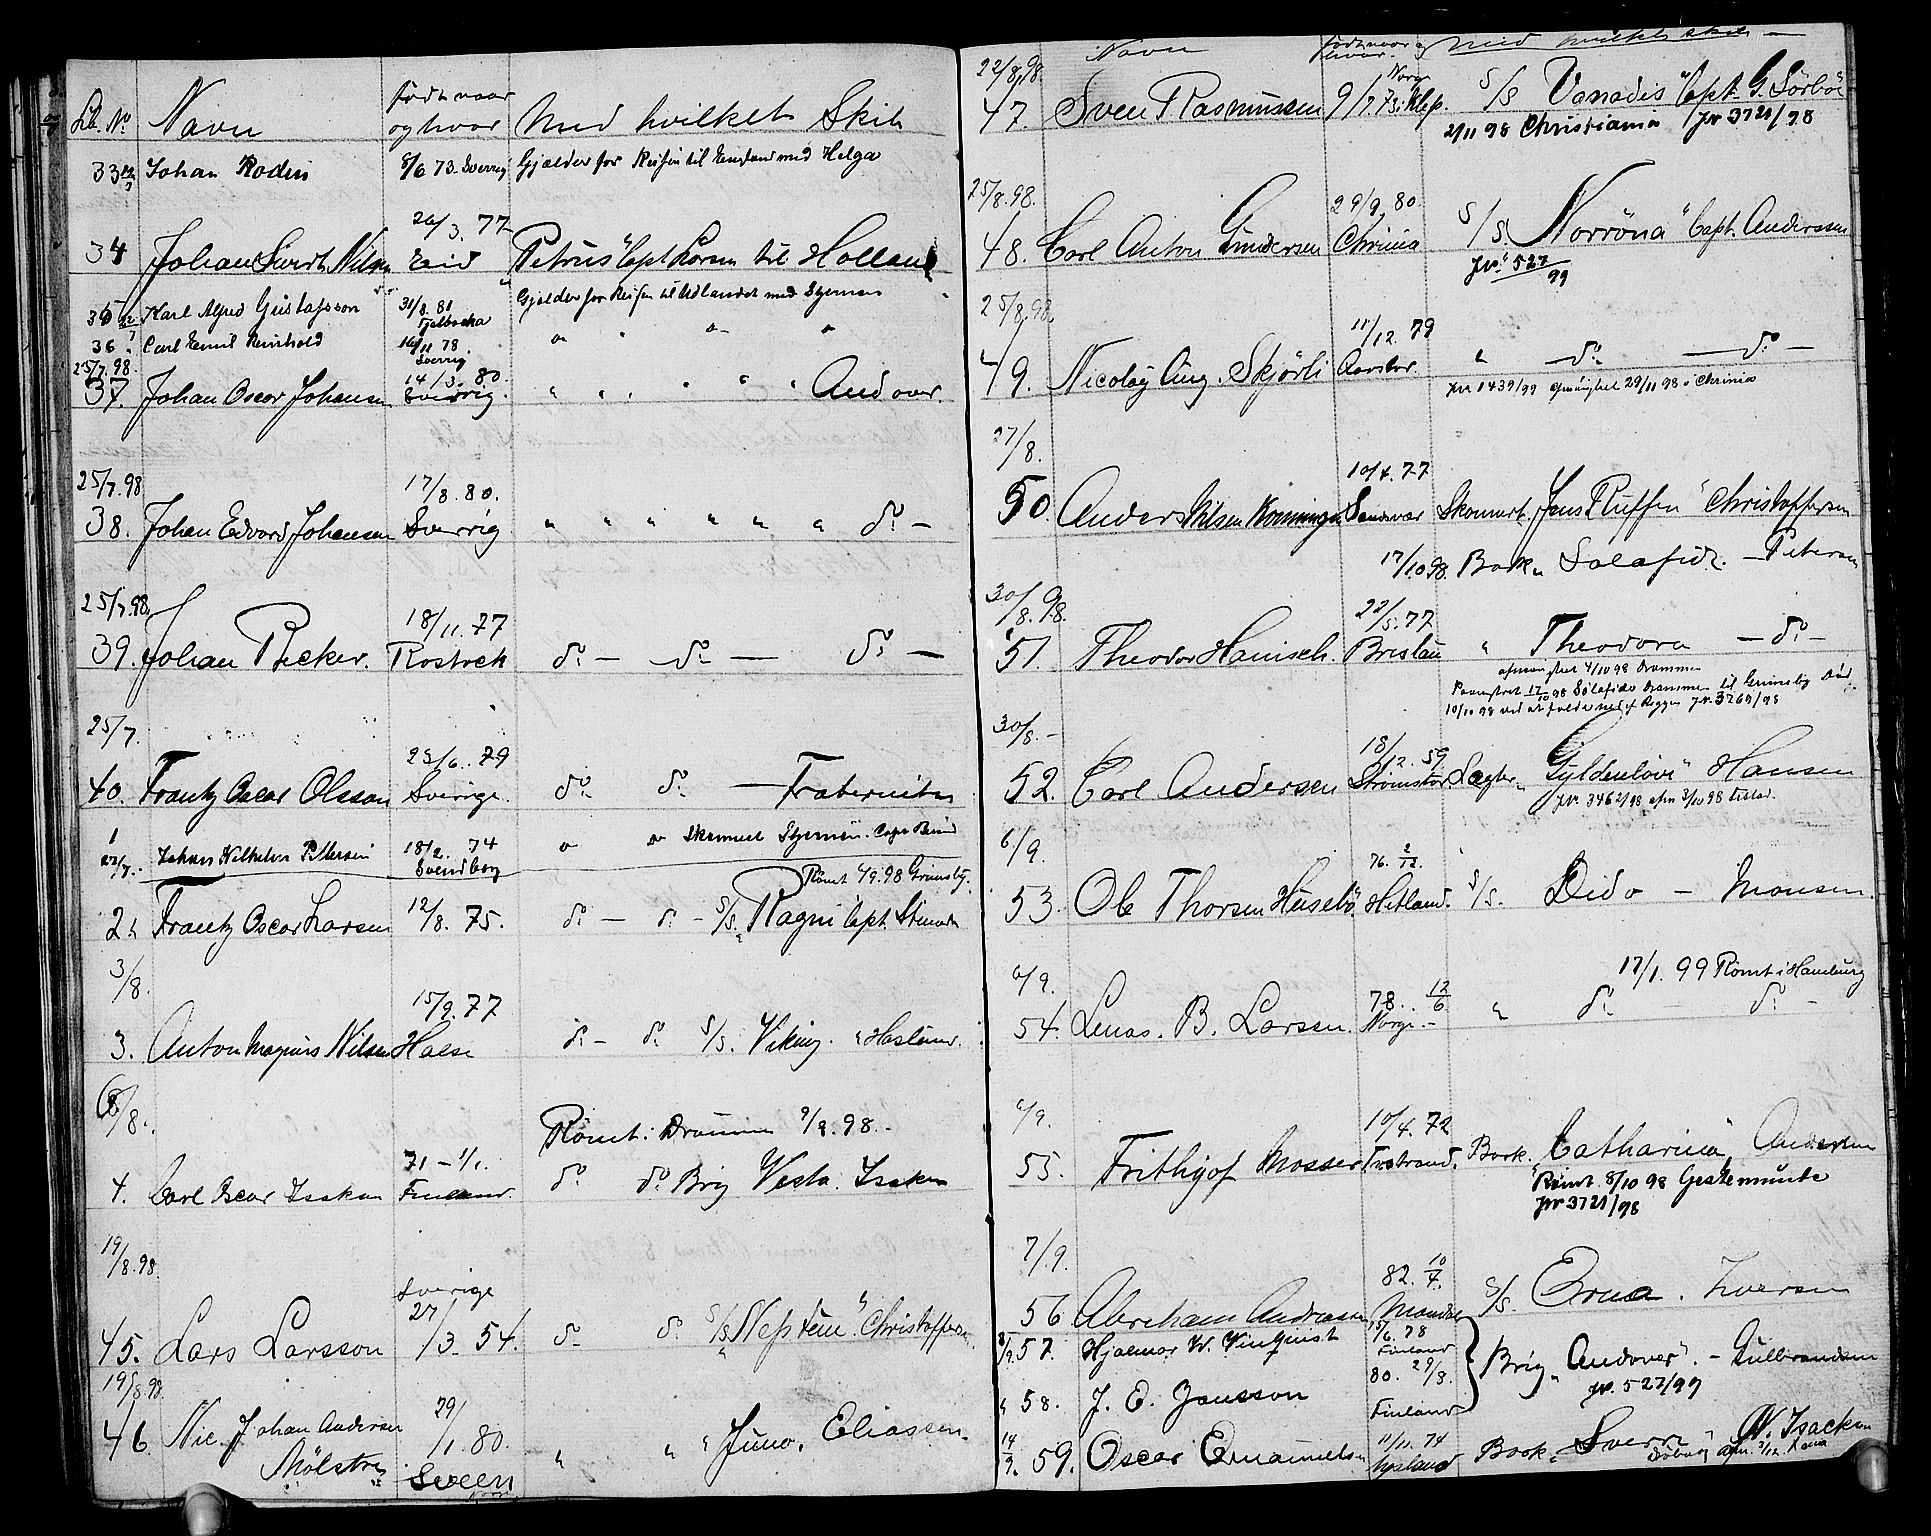 Lb. No Navn født naar og hvor Med hvilket Skib
33 Johan Rodin 8/6 73. Sverrig Gjælder for Reisen til England med Helga
34 Johan Sivert Nilsen 26/3. 77 Eid Petrus" Capt Larsen til Holland
35 Karl Alfred Gustafsson 31/8. 81 Fjelbacka Gjælder for Reisen til Udlandet med Stjernen
36 Carl Emil Reinhold 16/11 78. Sverrig
25/7. 98.
37. Johan Oscar Johansen 14/3. 80. Sverrig. Andover.
25/7. 98
38. Johan Edvard Johansen 17/8. 80. Sverrig do -
25/7. 98.
39. Johan Becker. 18/11. 77 Rostock do - do - do -
25/7.
40. Frantz Oscar Olsson 23/6. 79 Sverige. do do - Fraternitas
1 27/7. Johan Wilhelm Pettersen 18/2. 74 Svendborg Skonnert Stjernen. Capt
Rømt 4/9. 98 Grimsby.
2 Frantz Oscar Larsen 12/8. 75. do - do - S/S. Ragni Capt.
3/8.
3. Anton Magnus Nilsen 15/9. 77 Halse do - do S/S. Viking. Haslund.
6/8.
Rømt i Drammen 9/8. 98.
4. Carl Oscar Isaksen 71 - 1/1. Finland do do Brig Vesta. Isaksen
19/8. 98.
45. Lars Larsson Sverige 27/3. 54. do do S/S Neptun". Christoffersen
19/8. 98.
46 Nic. Johan Andersen Mølstre 29/1. 80. Sveen Norge " " " Juno. Eliassen.
Navn født naar og hvor med hvilket skib
22/8. 98.
47. Sven Rasmussen 9/7. 73. Klep. Norge S/S Vanadis" Capt. G. Sørbøe
2/11 98 Christiania Jr 3721/98
25/8. 98.
48. Carl Anton Gundersen 29/9. 80. Chrinia S/S. Norrøna" Capt. Anderssen
Jr. 527/99
25/8. 98.
49. Nicolay Aug. Skjørli 11/12. 79 " do - do -
Jr 1439/99 afmønstret 29/11 98 i Chrinia
27/8.
50. Anders Nilsen 10/4. 77 Skonnert. Jens Ruffen" Christoffersen
17/10 98. Bark. Solafide. - Petersen
30/8. 98.
51. Theodor Hanisch. 22/5. 77 Breslau " Theodora - do -
afmønstret 4/10 98 Drammen
Paamønstret 17/10 98 Solafide Drammen til Grimsby Død
10/10 98 ved at falde ned af Riggen Jr. 3269/98
30/8. -
52. Carl Andersen 18/12. 59 Strømstad Gyldenløve" Hansen
Jr. 3462/98 afm 3/10 98
6/9.
53. Ole Thorsen Husebø 76. 2/12. Hetland. S/S. Dido - Monsen.
17/1. 99 Rømt i Hamburg
6/9.
54. Lenas. B. Larsen. 78. 12/6 Norge. - " do - do -
6/9.
55. Frithjof Mosser 10/4. 72 Bark. Catharina" Andersen
Rømt 8/10 98 Gestemünde
Jr 3721/98
7/9.
56 Abraham Andreassen 82. 10/7. Mandal S/S. Erna. Iversen
8/9. 57. Hjalmar W. Vinqvist 15/6. 78 Finland Brig Andover". - Gulbrandsen
Jr. 527/99
" 58. J. E. Jansson 80. 29/8. Finland
14/9. 59. Oscar Emanuelsen 11/11. 74 Nyland Bark. Sverre" N. Isacksen
afm. 3/12